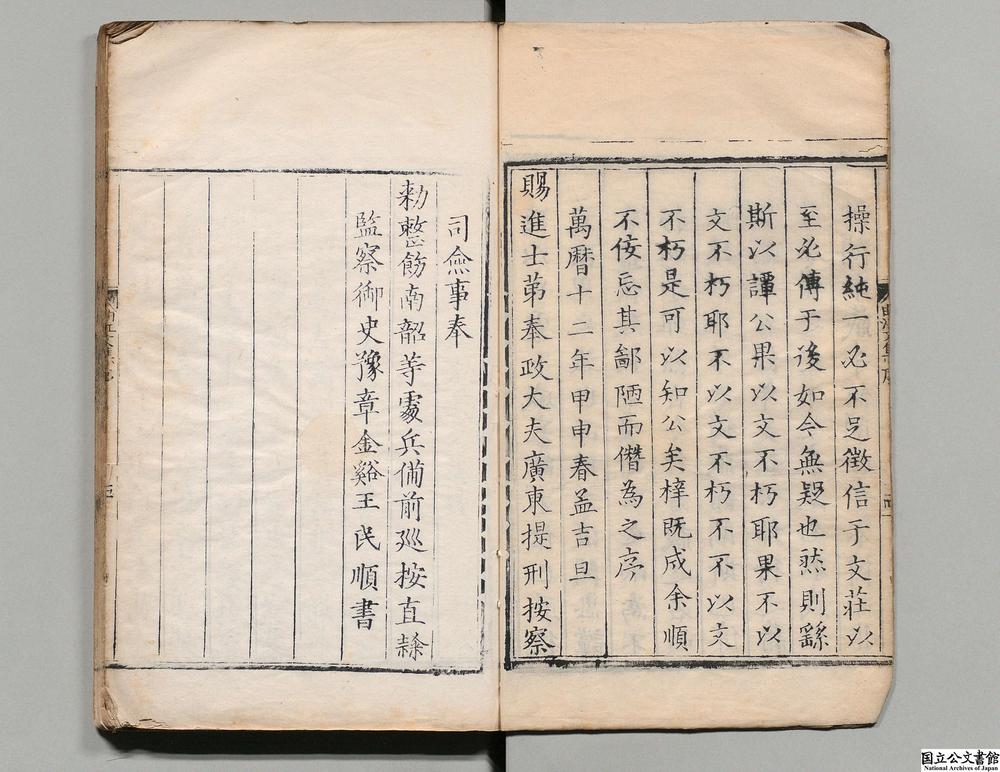 操行純一必不足徵信于文莊以
至必傳于後如今無疑也然則繇
斯以譚公果以文不朽耶果不以
文不朽耶不以文不朽不不以文
不朽是可以知公矣梓既成余順
不佞忘其鄙陋而僭為之序
萬曆十二年甲申春孟吉旦
賜進士苐奉政大夫廣東提刑按察
司僉事奉
勑整飭南韶等處兵備前廵按直隸
監察御史豫章金谿王民順書
国立公文書館
National Archives of Japan